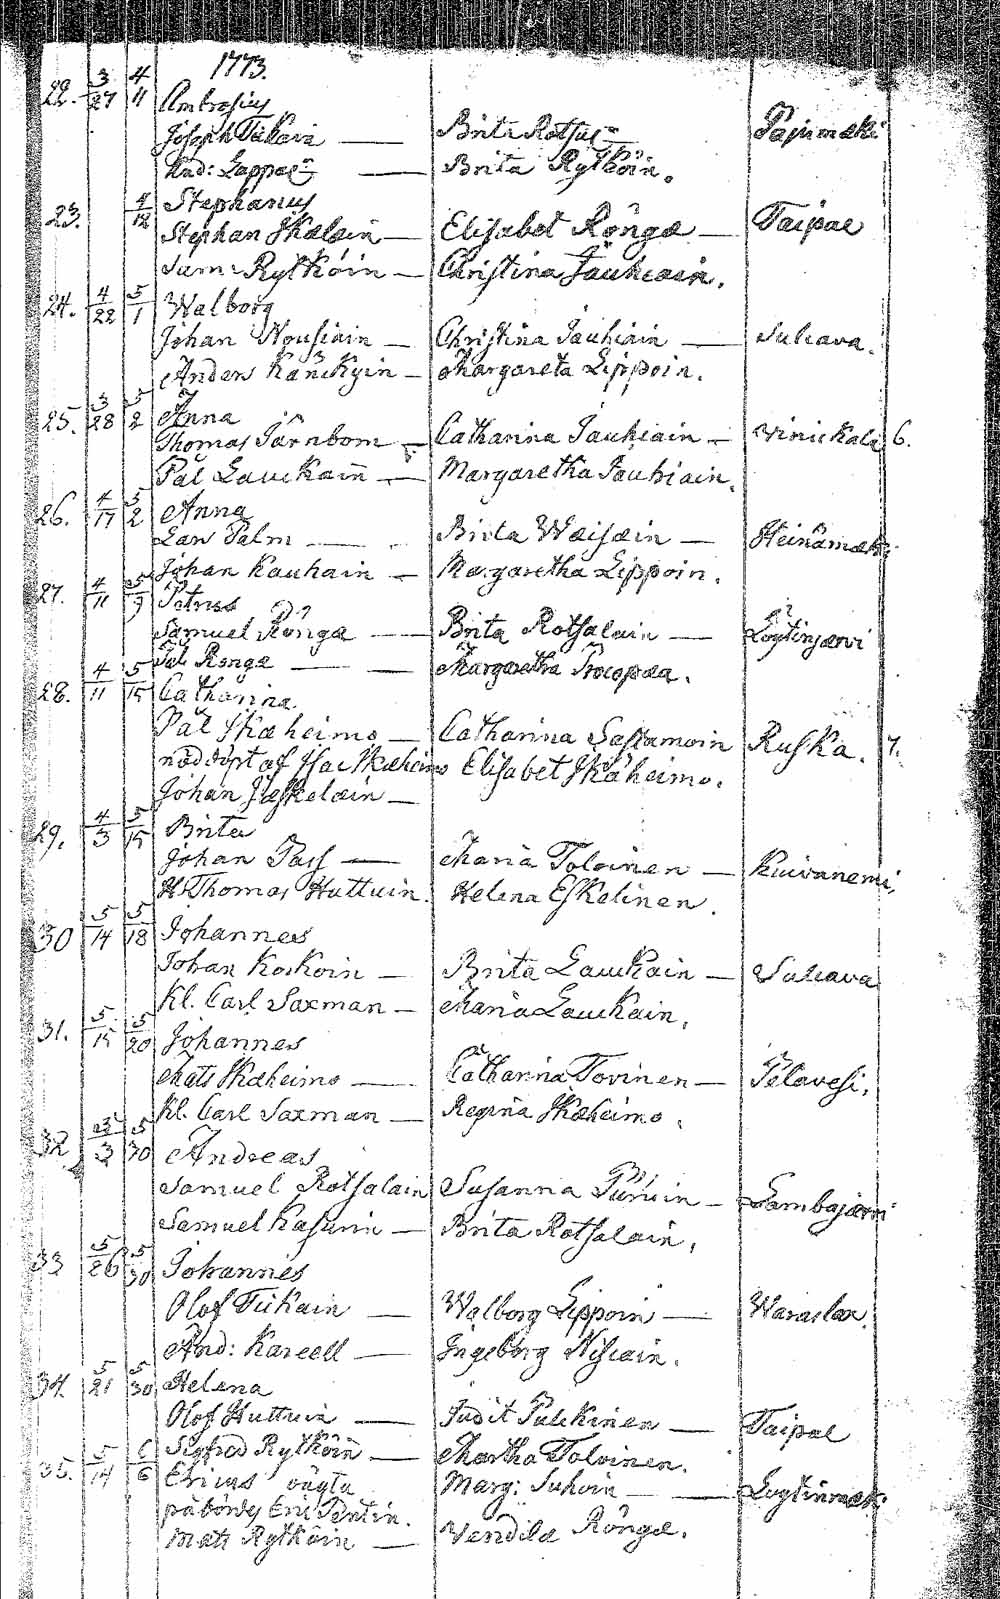 1773.
22. 3/27 4/11 Ambrosius
Joseph Tiikain — Brita Rotsal: Pajumäki
And: Lappal: — Brita Rytköin.
23. 4/12 Stephanus
Stephan Skälain — Elisabet Röngä — Taipal
Sam: Rytköin — Christina Jauhiain.
24. 4/22 5/1 Walborg
Johan Nousiain — Christina Jauhiain — Sulcava.
Anders Känckyin — Margareta Lippoin.
25. 3/28 5/2 Anna
Thomas Järnbom — Catharina Jauhiain — Vinickala 6.
Pål Lauckain — Margaretha Jauhiain.
26. 4/17 5/2 Anna
Lars Palm — Brita Wäisäin — Heinämäki
Johan Kauhain — Margaretha Lippoin.
27. 4/11 5/9 Petrus
Samuel Röngä — Brita Rotsalain — Löytinjärvi
Pål Röngä — Margaretha Procopæa.
28. 4/11 5/15 Catharina.
Pål Skäheimo — Catharina Sastamoin Ruska. 7.
nöddöpt af Isac Skäheimo Elisabet Skäheimo.
Johan Jäskeläin —
29. 4/3 5/15 Brita
Johan Pass — Maria Toloinen — Kuivanemi,
H. Thomas Huttuin. Helena Eskelinen.
30 5/14 5/18 Johannes
Johan Koskoin — Brita Lauckain — Sulcava
Kl. Carl Saxman — Maria Lauckain,
31. 5/15 5/20 Johannes
Mats Skäheimo — Catharina Tovinen — Pelavesi,
Kl. Carl Saxman — Regina Skäheimo,
32 3 5/30 Andreas
Samuel Rotsalain Susanna — Lambajærvi
Samuel Kasurin — Brita Rotsalain,
33 5/26 5/30 Johannes
Olof Tiikain — Walborg Lippoin — Waraslax.
And: Kareell — Ingeborg Nissain.
34. 5/21 5/30 Helena
Olof Huttuin — Judit Pulckinen — Taipal
Sigfred Rytköin — Martha Toloinen.
35. 5/14 6/6 Ericus oägta
påbördes Eric Pentin. Marg: Juhoin — Löytinmäki
Mats Rytköin — Vendila Röngä.